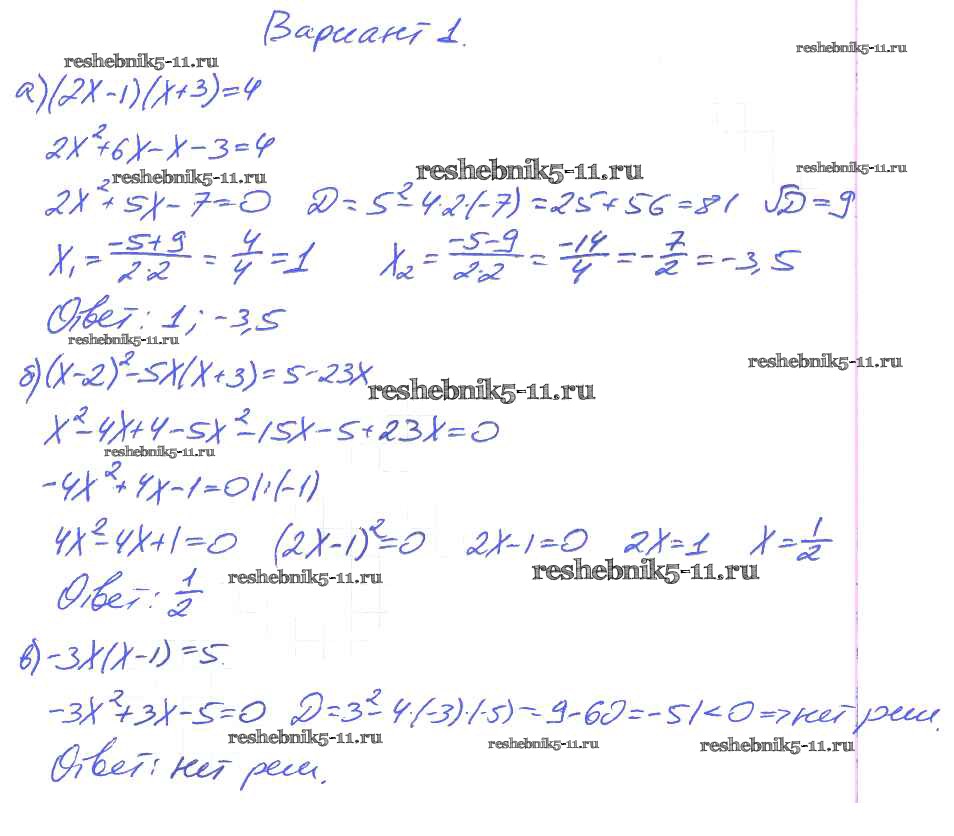 Вариант 1.
reshebnik5-11.ru reshebnik5-11.ru
а) (2x-1)(x+3)=4
2x²+6x-x-3=4
reshebnik5-11.ru reshebnik5-11.ru reshebnik5-11.ru
2x²+5x-7=0 D=5²-4·2·(-7)=25+56=81 √D=9
x₁=(-5+9)/(2·2)=4/4=1 x₂=(-5-9)/(2·2)=-14/4=-7/2=-3,5
Ответ: 1; -3,5
reshebnik5-11.ru reshebnik5-11.ru
б) (x-2)²-5x(x+3)=5-23x
reshebnik5-11.ru
x²-4x+4-5x²-15x-5+23x=0
reshebnik5-11.ru
-4x²+4x-1=0|:(-1)
4x²-4x+1=0 (2x-1)²=0 2x-1=0 2x=1 x=1/2
reshebnik5-11.ru reshebnik5-11.ru
Ответ: 1/2
в) -3x(x-1)=5.
-3x²+3x-5=0 D=3²-4·(-3)·(-5)=9-60=-51<0=>нет реш.
reshebnik5-11.ru reshebnik5-11.ru reshebnik5-11.ru
Ответ: нет реш.